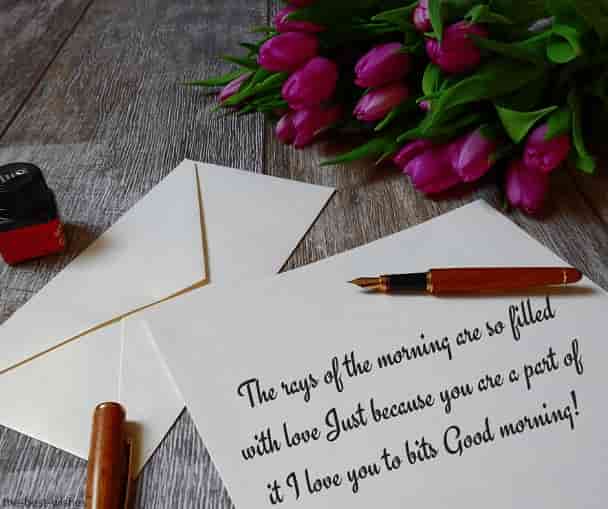 The rays of the morning are so filled
with love Just because you are a part of
it I love you to bits Good morning!
the-best-wishes